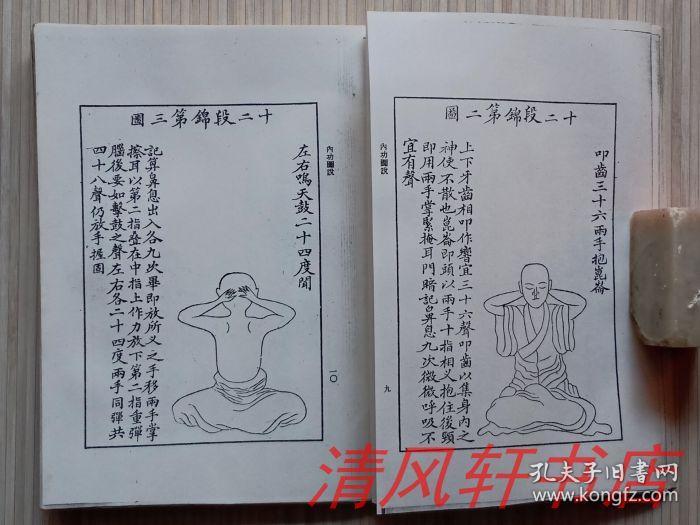 十二段錦第二圖
叩齒三十六兩手抱崑崙
上下牙齒相叩作響宜三十六聲叩齒以集身內之
神使不散也崑崙即頭以兩手十指相叉抱住後頸
即用兩手掌緊掩耳門暗記鼻息九次微微呼吸不
宜有聲
內功圖說
九
十二段錦第三圖
左右鳴天鼓二十四度聞
記算鼻息出入各九次畢即放所叉之手移兩手掌
擦耳以第二指叠在中指上作力放下第二指重彈
腦後要如擊鼓之聲左右各二十四度兩手同彈共
四十八聲仍放手握固
內功圖說
一〇
清风轩书店
孔夫子旧书网
www.kongfz.com